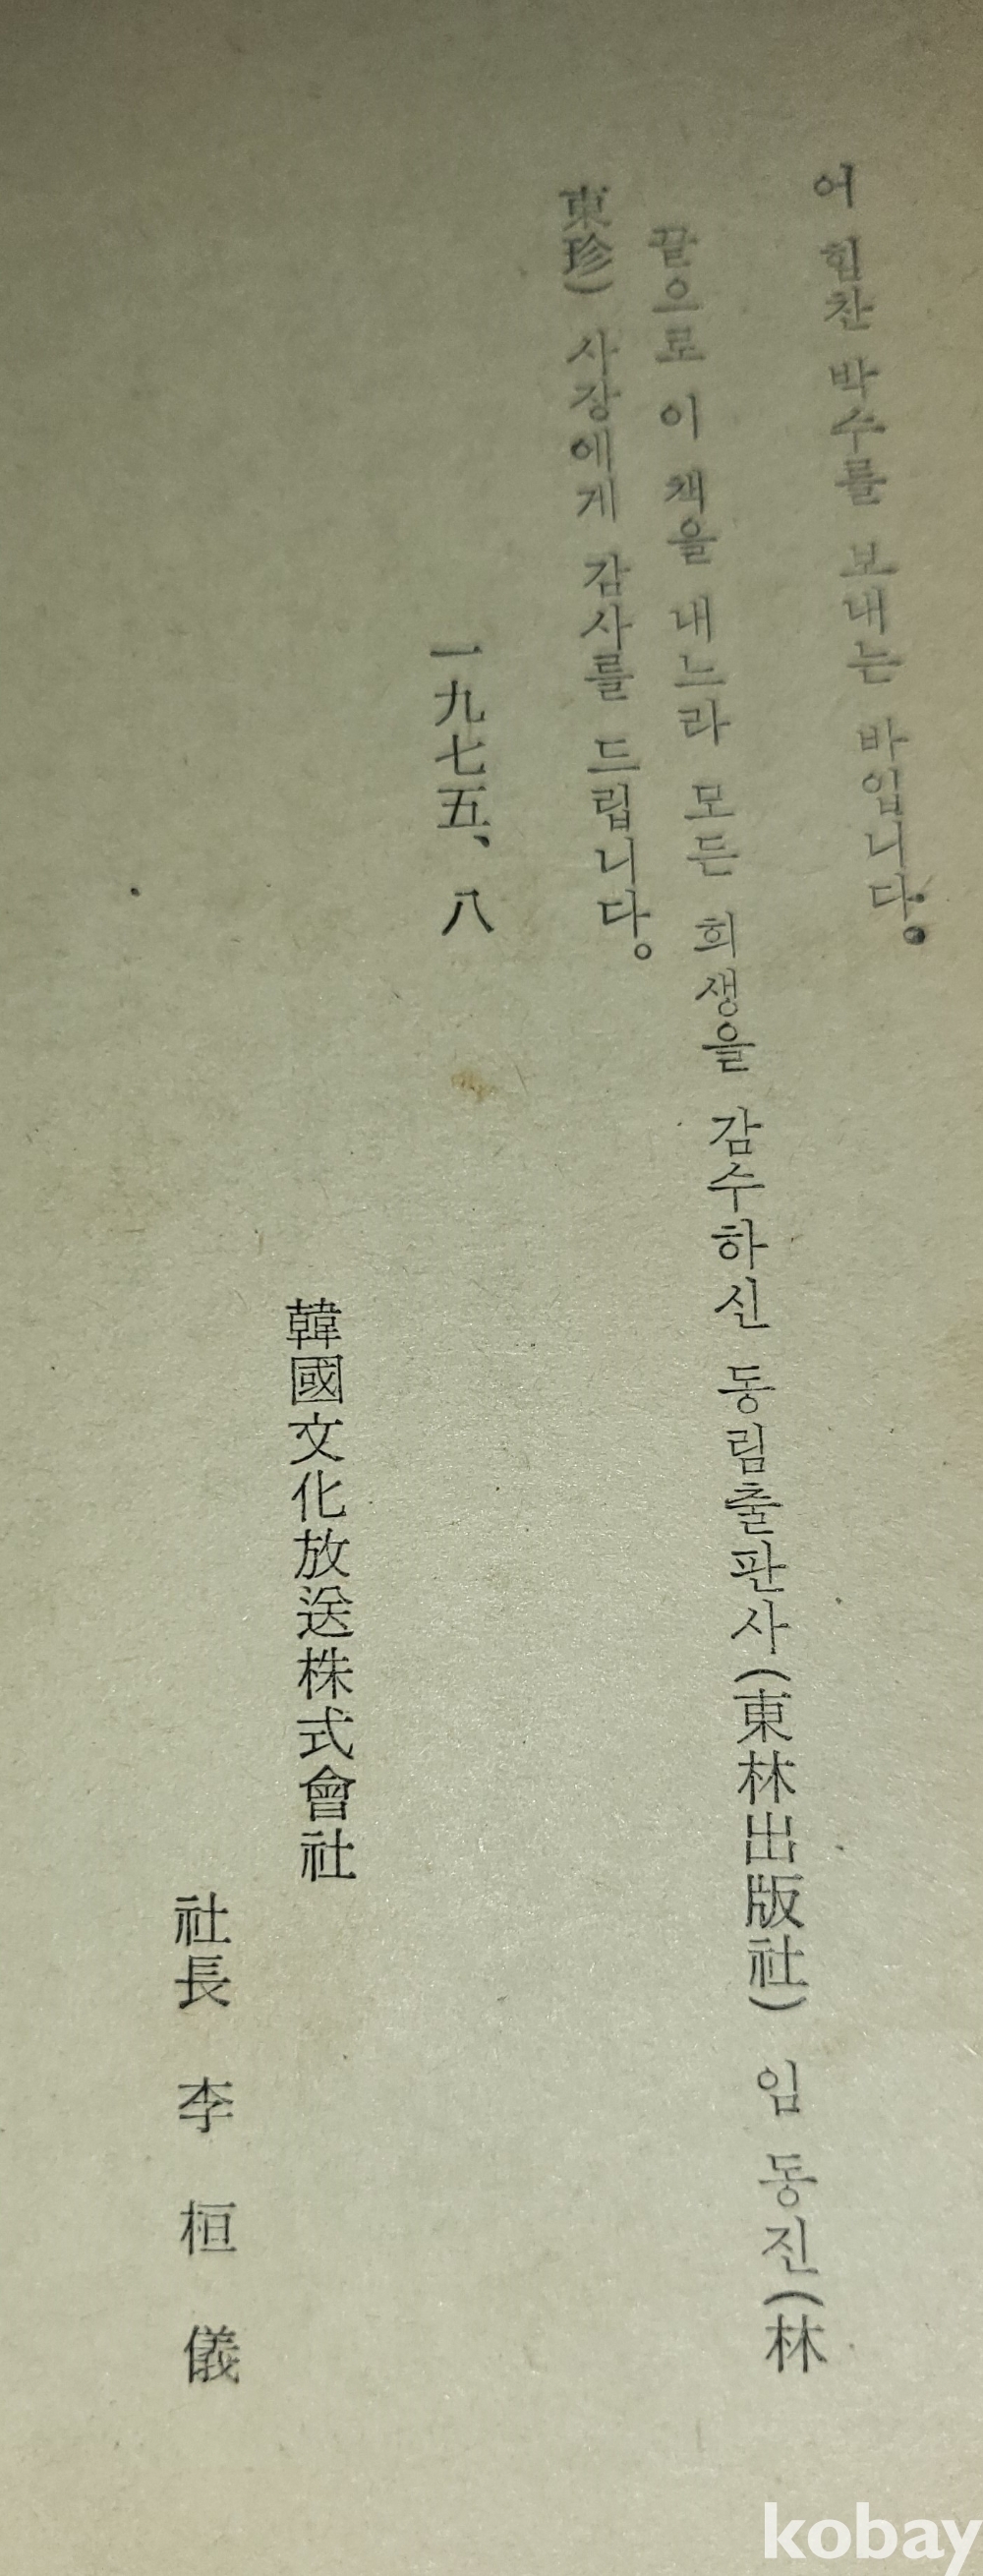 어 힘찬 박수를 보내는 바입니다.
끝으로 이 책을 내느라 모든 희생을 감수하신 동림출판사(東林出版社) 임 동진(林
東珍) 사장에게 감사를 드립니다。
一九七五、八
韓國文化放送株式會社
社長 李 桓 儀
kobay